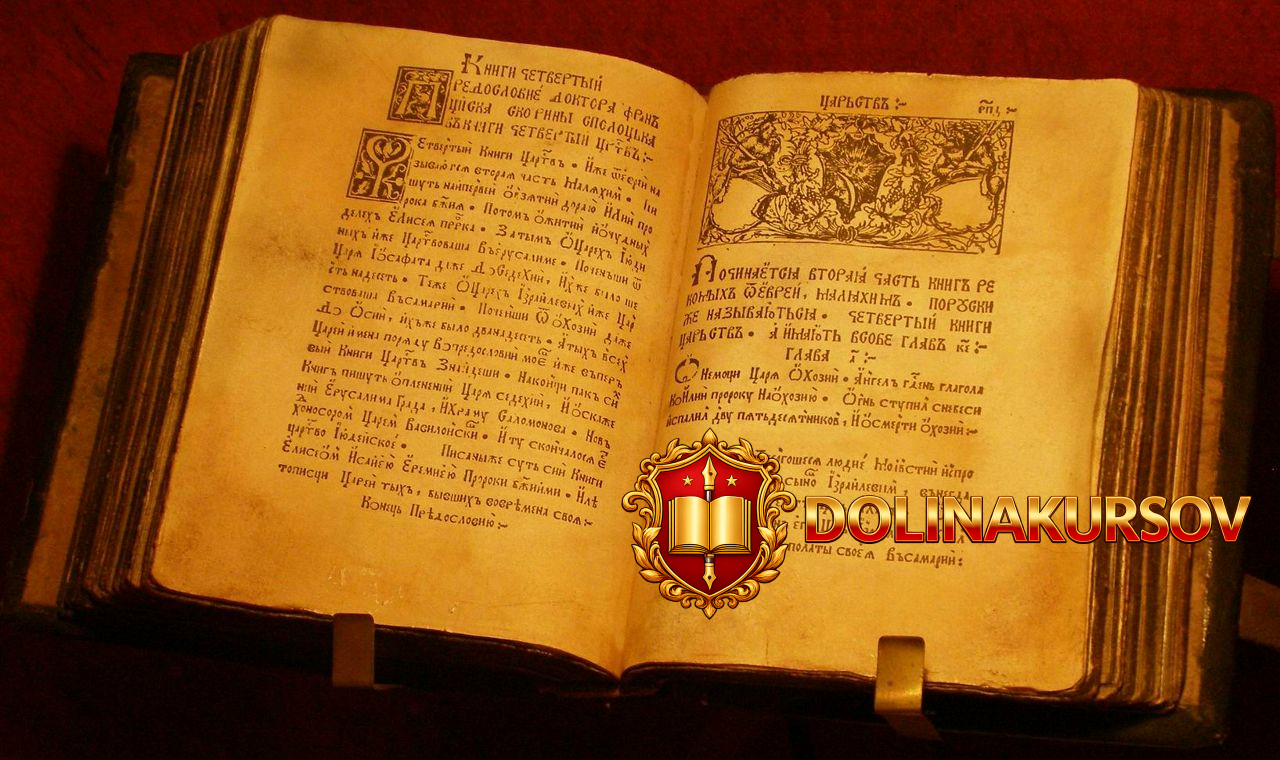 Книги четвертый
предословие доктора Фрнъ
циска скорины сполоцька
въкниги четвертыи цртвъ:~
Етвертыи Книги Царствъ • Иже ѿеврей на
зываются вторая часть Малахим •
шуть найпервей Илии про
рока бжия • Потомъ ѡжитии ичудных
делехъ Елисея пррка • Затымъ ѡЦарех Июди
ныхъ иже Царствоваша въерусалиме • Поченъши ѿ
Царя Иосафата даже до Седехии, ихже было ше
сть надесеть • Теже ѡЦарехъ Израилевых иже Цар
ствоваша Въсамарии • Поченши ѿ Охозии даже
До Осии, ихъже было дванадесеть • Атых всех
Царей имена поряду впредословии моем иже въперъ
выи Книги Царствъ Знайдеши • Наконци пакъ сих
Книгъ пишуть ѡпленении Царя седехии, И ѡскаже
нии Ерусалима Града, ихраму Саломонова • Новъ
ходоносором Царем Вавилонским • И ту скончалося
царство Июдейское • Писачыже суть сии Книги
Елисеом Исаиею Еремиею Пророки бжиими • Илѣ
тописци Царей тых, бывшихъ вовремена своя:~
Конець Предословию:~
Царьствъ :~
рпı, ~
Починаетсиа вторая часть книгъ ре
комыхъ ѿеврей, малахимъ • поруски
же називаютьсиа • четвертыи книги
Царьствъ • а имають всобе главъ ке:~
Глава а:~
Онемощи Царя ѡхозии • Ангелъ гдень глагола
ко Илии пророку Наѡхозию • Огнь ступил снебеси
испалил дву пятьдесятников, Иѡсмерти ѡхозии:~
людие Моивстии испро
Израилевым, вънегда
полаты своея въсамарии:
DOLINAKURSOV